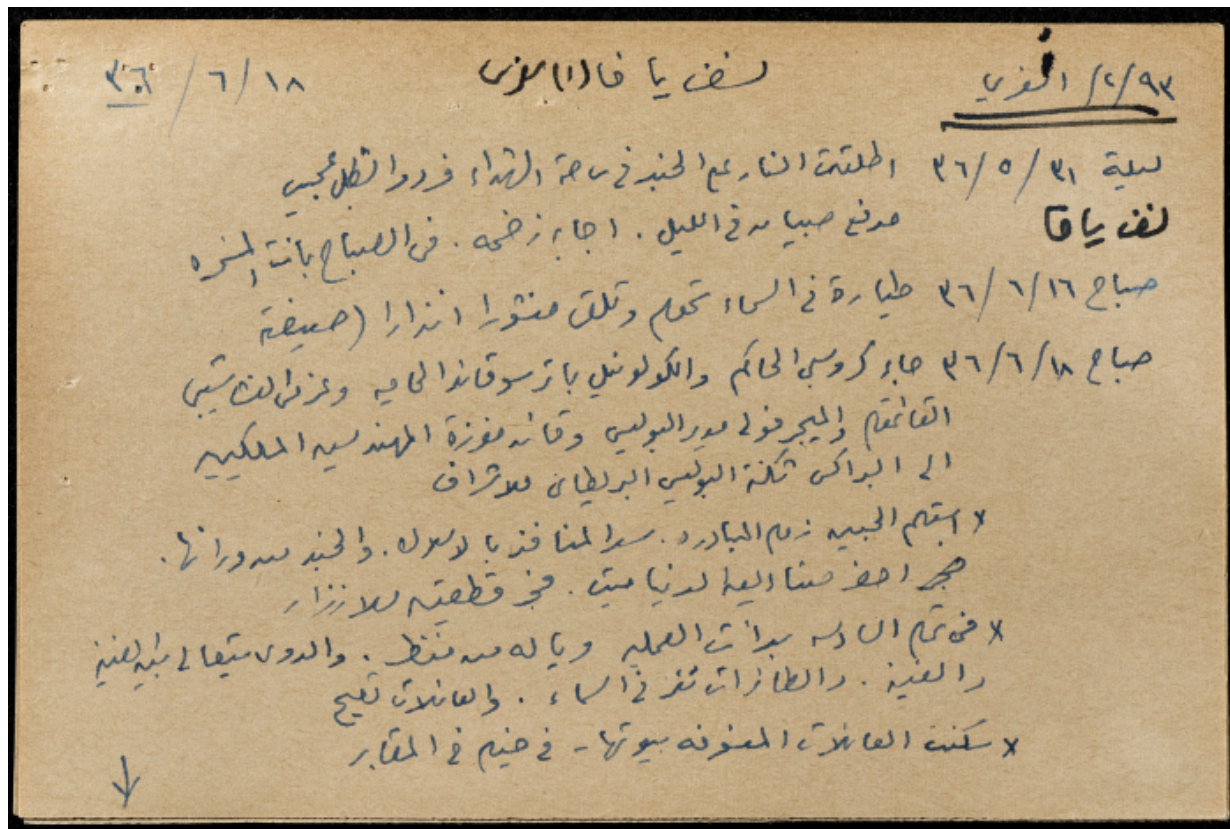 ٩٣/٢/ الغزي نسف يافا (١) ٣٦/٦/١٨
ليلة ٣١/٥/٣٦ اطلقت النار على الجند في ساحة الشهداء فردوا بشكل عجيب
نسف يافا مدفع في الليل. اجابه ضخمه. في الصباح بانت
صباح ١٦/٦/٣٦ طيارة في السماء تحوم وتلقى منشورا انذارا (صيغته
صباح ١٨/٦/٣٦ جاء كروسبي الحاكم والكولونيل باترسو قائد الحاميه وعزمي النشاشيبي
القائمقام والميجر فولي مدير البوليس وقائد مفرزة المهندسين الملكيين
الى البراكس ثكنة البوليس البريطاني للاشراف
x استلم الجيش زمام المبادره. سد المنافذ بالاسلاك. والجند من ورائها.
الدنيا ميت. فجر قطعتين للانذار
x في تمام السادسه بدأت العمليه ويا له من منظر. والدوى يتعالى بين الفينة
والفينة. والطائرات تئز في السماء. والعائلات تصيح
x سكنت العائلات المنسوفه بيوتها - في خيام في المقابر
↓